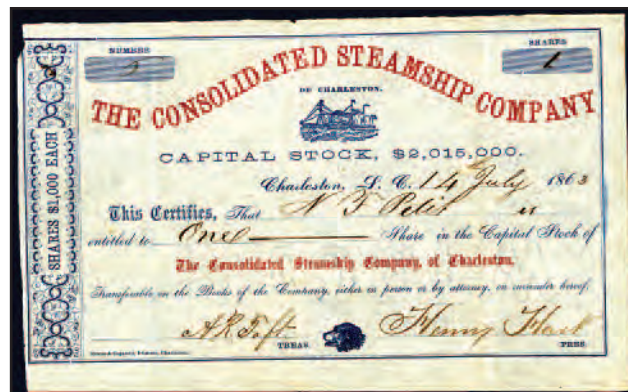 NUMBER
SHARES
1
THE CONSOLIDATED STEAMSHIP COMPANY
OF CHARLESTON.
CAPITAL STOCK, $2,015,000.
Charleston, S. C. 14 July 1863
This Certifies, That N F Petit is
entitled to One Share in the Capital Stock of
The Consolidated Steamship Company, of Charleston.
Transferable on the Books of the Company, either in person or by attorney, on surrender hereof.
A R Taft TREAS.
Henry Hart PRES.
SHARES $1,000 EACH